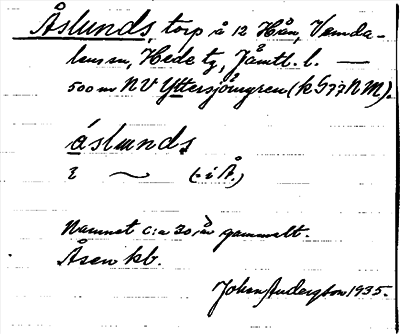 Åslunds, torp å 12 Hån, Vemda-
lens sn, Hede tg, Jämtl. l. —
500 m NV Yttersjömyren (k G77NM).
åslunds
i ~ (: i Å.)
Namnet c:a 30 år gammalt.
Åsen kb.
Johan Andersson 1935.